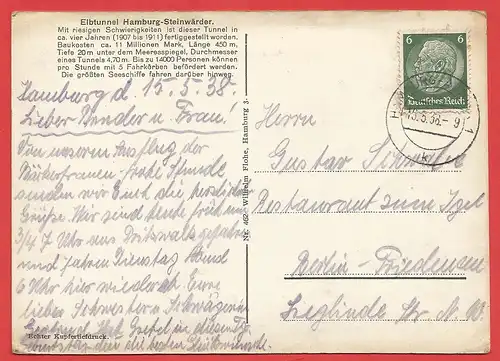 Elbtunnel Hamburg-Steinwärder.
Mit riesigen Schwierigkeiten ist dieser Tunnel in
ca. vier Jahren (1907 bis 1911) fertiggestellt worden.
Baukosten ca. 11 Millionen Mark, Länge 450 m,
Tiefe 20 m unter dem Meeresspiegel, Durchmesser
eines Tunnels 4,70 m. Bis zu 14000 Personen können
pro Stunde mit 5 Fahrkörben befördert werden.
Die größten Seeschiffe fahren darüber hinweg.
Hamburg d. 15.5.38.
Lieber u. Frau!
Von unserem Ausflug der
frohe Stunde
senden wir Euch die herzlichsten
Grüße. Wir sind heute früh um
3/4 7 Uhr aus
und fahren Dienstag Abend
6 Uhr hier wieder ab. Eure
liebe Schwester u. Schwägerin
die besten Glückwünsche.
Echter Kupfertiefdruck.
Nr. 462 Wilhelm Flohe, Hamburg 3.
6 6
Deutsches Reich
15.5.38.-9
1
Herrn
Gustav
Restaurant zum Igel
Berlin-Friedenau
Sieglinde Str. N.